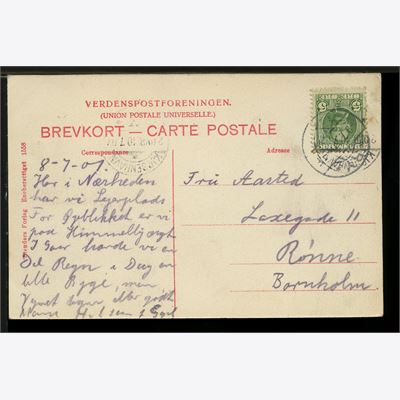 VERDENSPOSTFORENINGEN.
(UNION POSTALE UNIVERSELLE.)
BREVKORT — CARTE POSTALE
Correspondance
Adresse
Eneberettiget 1558
8-7-07.
Her i Nærheden
har vi Lejrplads
For Øjeblikket er vi
paa Himmelbjerget
I Gaar havde vi en
Del Regn i Dag en
lille Byge, men
godt
Fru Aasted
Laxegade 11
Rønne
Bornholm